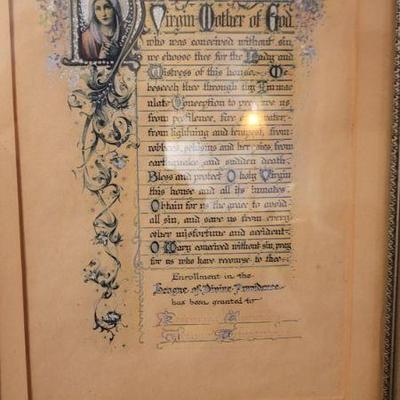 Virgin Mother of God
who was conceived without sin,
we choose thee for the Lady and
Mistress of this house. We
beseech thee through thy Immac
ulate Conception to preserve us
from pestilence, fire and water,
from lightning and tempest, from
robbers, schisms and heresies, from
earthquake and sudden death.
Bless and protect O holy Virgin
this house and all its inmates.
Obtain for us the grace to avoid
all sin, and save us from every
other misfortune and accident.
O Mary conceived without sin, pray
for us who have recourse to thee.
Enrollment in the
League of Divine Providence
has been granted to